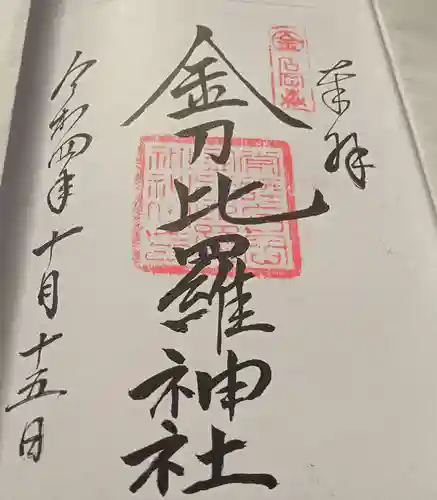 奉拝
金刀比羅神社
令和四年十月十五日